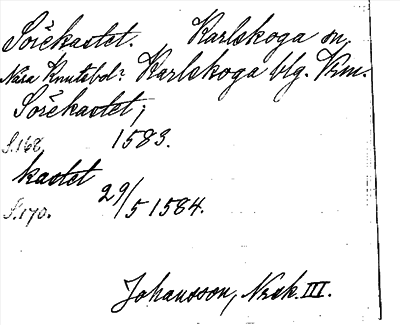 Sořekastet. Karlskoga sn.
Nära Knutsbol: Karlskoga blg. Vrm.
Sořekastet;
S.168, 1583.
kastet
S.170. 29/5 1584.
Johansson, Nrsk. III.